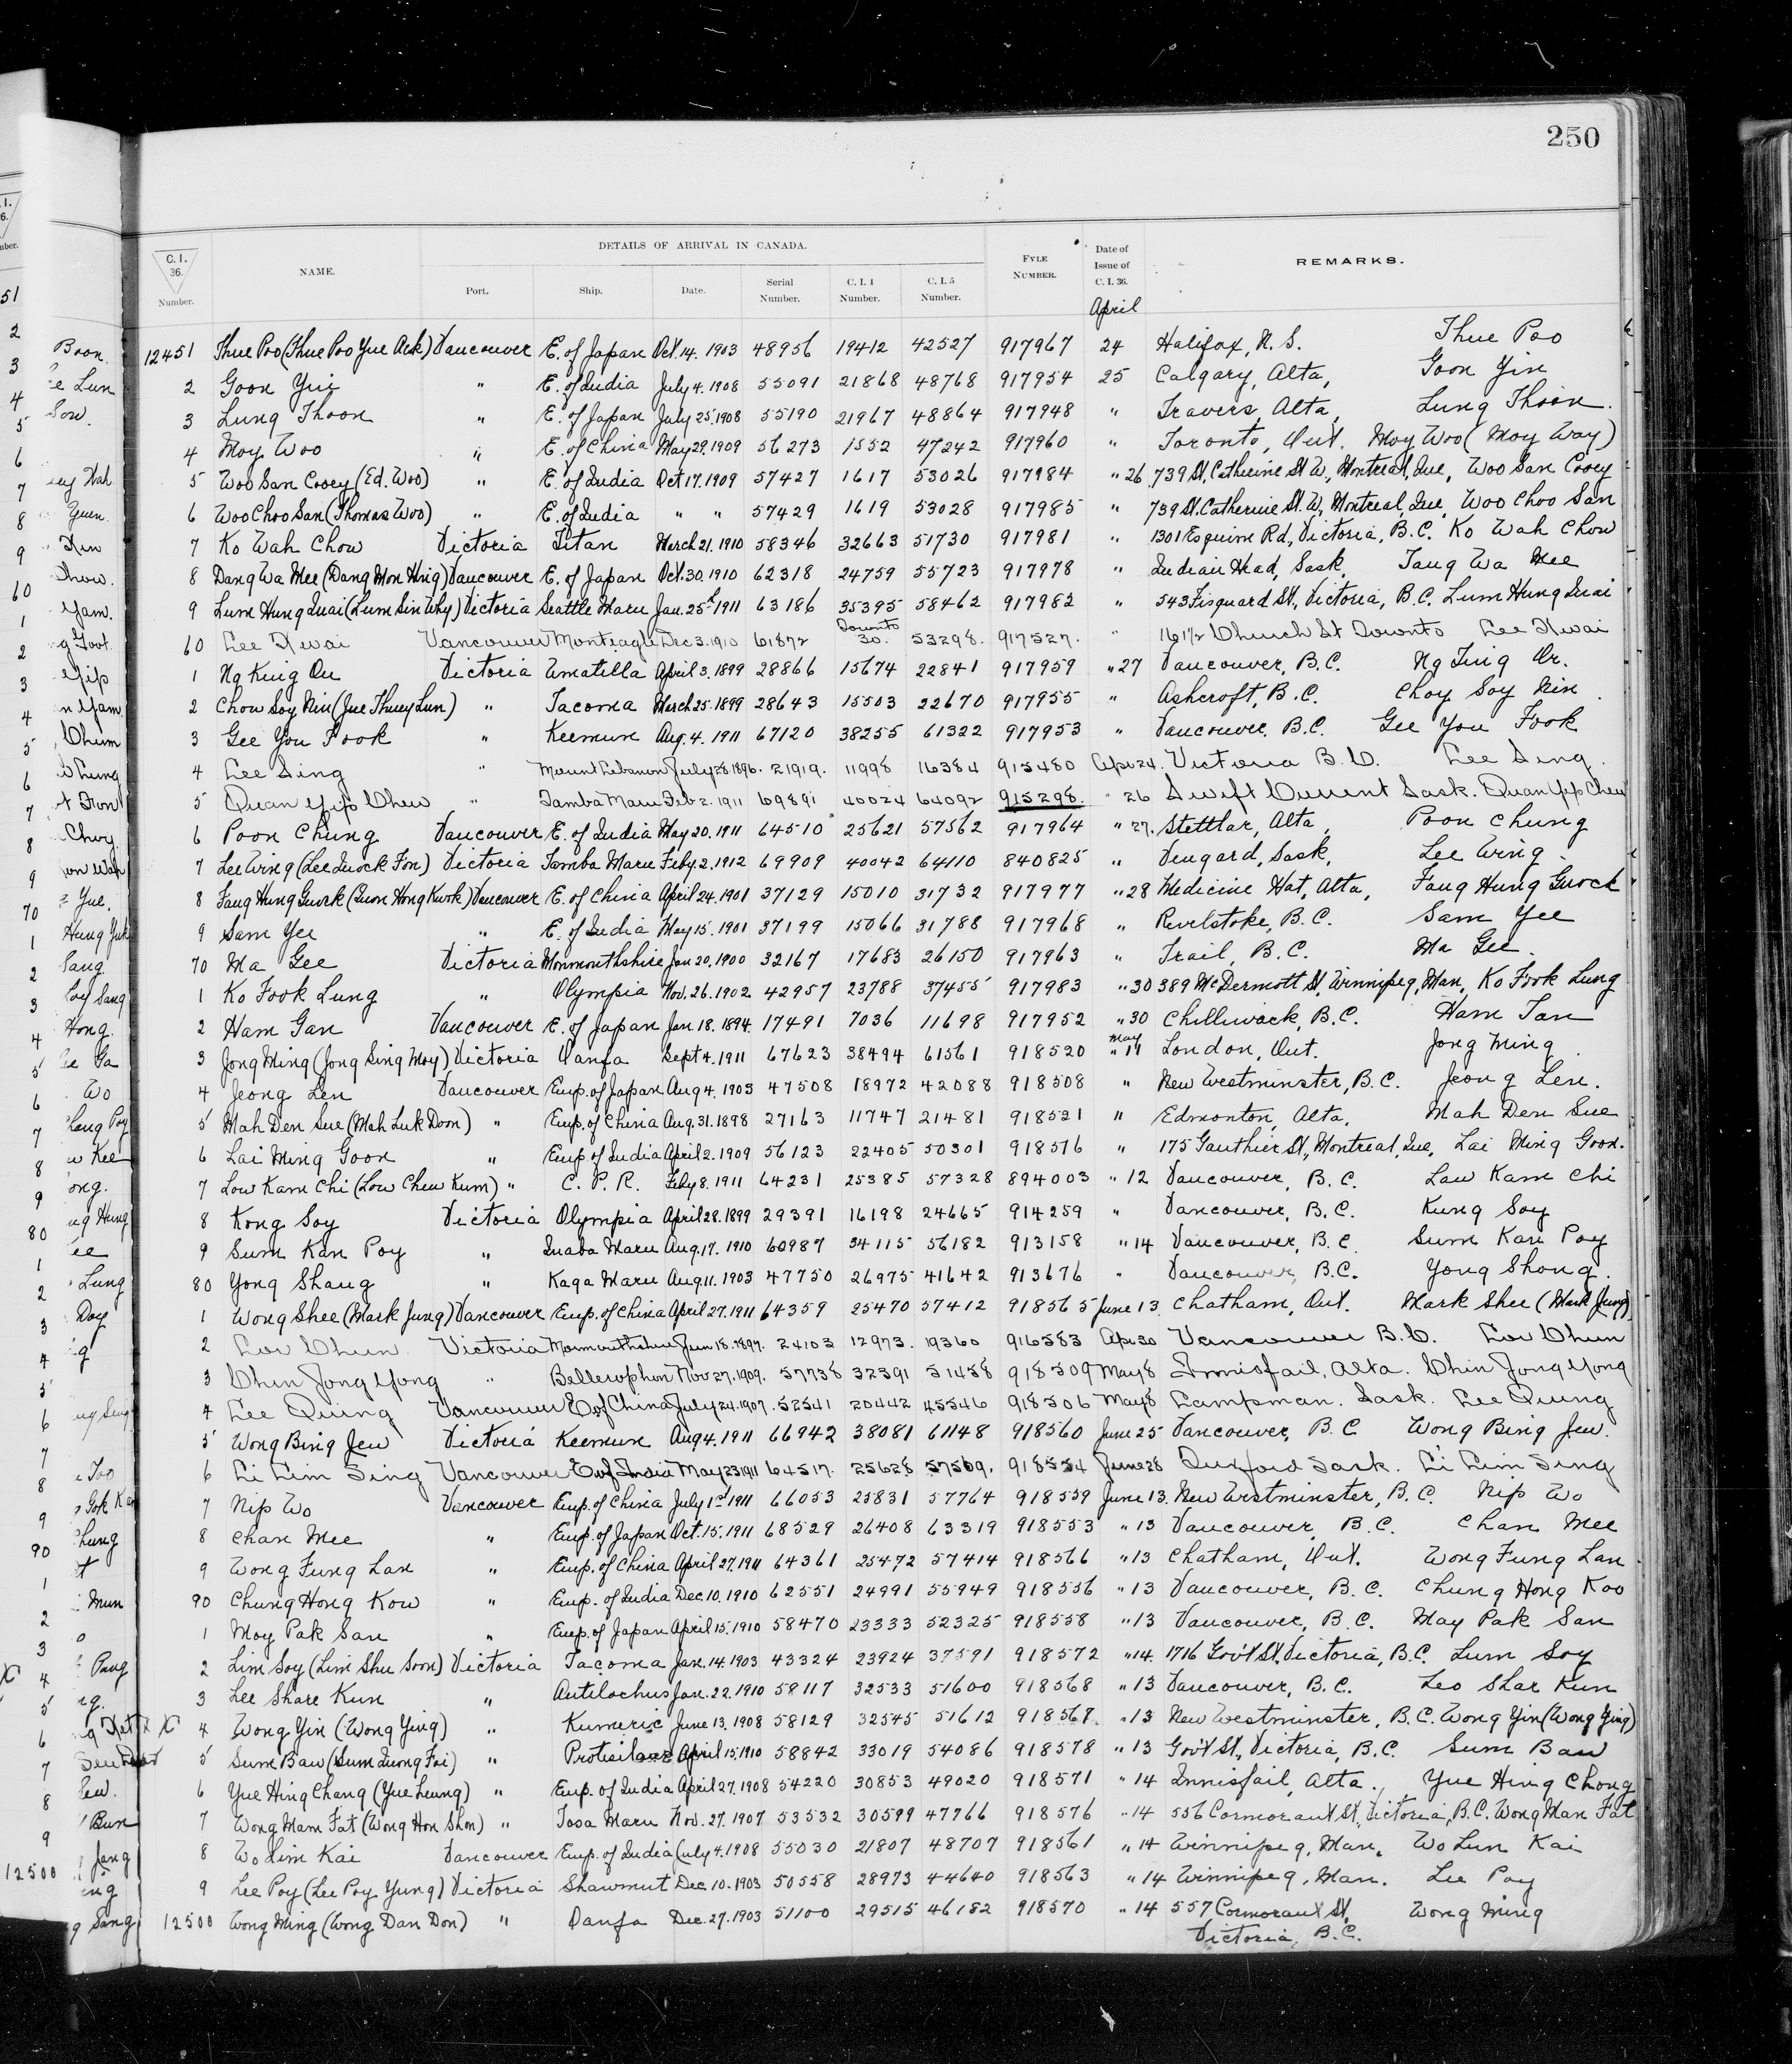 250
DETAILS OF ARRIVAL IN CANADA.
C. I. 36. Number. NAME. Port. Ship. Date. Serial Number. C. I. 4 Number. C. I. 5 Number. FYLE NUMBER. Date of Issue of C. I. 36. REMARKS.
April
12451 Thue Poo (Thue Poo Yue Ack) Vancouver E. of Japan Oct. 14. 1903 48956 19412 42527 917967 24 Halifax, N. S. Thue Poo
2 Goon Yin " E. of India July 4. 1908 55091 21868 48768 917954 25 Calgary, Alta, Goon Yin
3 Lung Thoon " E. of Japan July 25. 1908 55190 21967 48864 917948 " Travers, Alta, Lung Thoon.
4 Moy Woo " E. of China May 29. 1909 56273 1552 47242 917960 " Toronto, Ont. Moy Woo (Moy Way)
5 Woo San Cooey (Ed. Woo) " E. of India Oct 17. 1909 57427 1617 53026 917984 " 26 739 St. Catherine St W., Montreal, Que, Woo San Cooey
6 Woo Choo San (Thomas Woo) " E. of India " " 57429 1619 53028 917985 " 739 St. Catherine St. W, Montreal, Que, Woo Choo San
7 Ko Wah Chow Victoria Titan March 21. 1910 58346 32663 51730 917981 " 1301 Esquim Rd, Victoria, B.C. Ko Wah Chow
8 Dang Wa Mee (Dang Mon Hing) Vancouver E. of Japan Oct. 30. 1910 62318 24759 55723 917978 " Indian Head, Sask, Tang Wa Mee
9 Lum Hung Quai (Lum Sin Why) Victoria Seattle Maru Jan. 25th 1911 63186 35395 58462 917982 " 543 Fisguard St., Victoria, B.C. Lum Hung Quai
60 Lee Kwai Vancouver Monteagle Dec 3. 1910 61872 Toronto 30. 53298. 917527. " 161½ Church St Toronto Lee Kwai
1 Ng King Ou Victoria Umatilla April 3. 1899 28866 15674 22841 917959 " 27 Vancouver, B.C. Ng Ting Or.
2 Chow Soy Nin (Jue Thuey Lun) " Tacoma March 25. 1899 28643 15503 22670 917955 " Ashcroft, B.C. Choy Soy Nin
3 Gee You Fook " Keemun Aug. 4. 1911 67120 38255 61322 917953 " Vancouver, B.C. Gee You Fook
4 Lee Sing " Mount Lebanon July 28 1896. 21919. 11998 16384 915480 Apr 24. Victoria B.C. Lee Sing.
5 Quan Yip Chew " Tamba Maru Feb 2. 1911 69891 40024 64092 915298. " 26 Swift Current Sask. Quan Yip Chew
6 Poon Chung Vancouver E. of India May 20. 1911 64510 25621 57562 917964 " 27. Stettlar, Alta, Poon Chung
7 Lee Wing (Lee Quock Fon) Victoria Tamba Maru Feby. 2. 1912 69909 40042 64110 840825 " Vengard, Sask, Lee Wing.
8 Fang Hung Guock (Quon Hong Kwok) Vancouver E. of China April 24. 1901 37129 15010 31732 917977 " 28 Medicine Hat, Alta, Fang Hung Guock
9 Sam Yee " E. of India May 15. 1901 37199 15066 31788 917968 " Revelstoke, B.C. Sam Yee
70 Ma Gee Victoria Monmouthshire Jan 20. 1900 32167 17683 26150 917963 " Trail, B.C. Ma Gee.
1 Ko Fook Lung " Olympia Nov. 26. 1902 42957 23788 37455 917983 " 30 389 McDermott St, Winnipeg, Man, Ko Fook Lung
2 Ham Gan Vancouver E. of Japan Jan. 18. 1894. 17491 7036 11698 917952 " 30 Chilliwack, B.C. Ham Tan
3 Jong Ming (Jong Sing Moy) Victoria Oanfa Sept 4. 1911 67623 38494 61561 918520 May 11 London, Ont. Jong Ming
4 Jeong Len Vancouver Emp. of Japan Aug 4. 1903 47508 18972 42088 918508 " New Westminster, B.C. Jeong Len.
5 Mah Den Sue (Mah Luk Doon) " Emp. of China Aug. 31. 1898 27163 11747 21481 918521 " Edmonton, Alta. Mah Den Sue
6 Lai Ming Goon " Emp of India April 2. 1909 56123 22405 50301 918516 " 175 Gauthier St, Montreal, Que, Lai Ming Goon.
7 Low Kam Chi (Low Chew Kum) " C. P. R. Feby 8. 1911 64231 25385 57328 894003 " 12 Vancouver, B.C. Law Kam Chi
8 Kong Soy Victoria Olympia April 28. 1899 29391 16198 24665 914259 " Vancouver, B.C. Kung Soy
9 Sum Kan Poy " Inaba Maru Aug. 17. 1910 60987 34115 56182 913158 " 14 Vancouver, B.C. Sum Kan Poy
80 Yong Shang " Kaga Maru Aug 11. 1903 47750 26975 41642 913676 " Vancouver, B.C. Yong Shong.
1 Wong Shee (Mark Jung) Vancouver Emp. of China April 27. 1911 64359 25470 57412 918565 June 13 Chatham, Ont. Mark Shee (Mark Jung)
2 Loi Chun Victoria Monmouthshire Jun 18. 1897. 24103 12973. 19360 916583 Apr 30 Vancouver B.C. Loi Chun
3 Chin Jong Yong " Bellerophon Nov 27. 1909. 57738 32391 51458 918509 May 8 Innisfail, Alta. Chin Jong Yong
4 Lee Quing Vancouver E. of China July 24. 1907. 52541 20442 45546 918506 May 8 Lampman. Sask. Lee Quing
5 Wong Bing Jew Victoria Keemun Aug 4. 1911 66942 38081 61148 918560 June 25 Vancouver, B.C Wong Bing Jew.
6 Li Lim Sing Vancouver E. of India May 23 1911 64517. 25628 57569. 918554 June 28 Duxford Sask. Li Lim Sing
7 Nip Wo Vancouver Emp. of China July 1st 1911 66053 25831 57764 918559 June 13. New Westminster, B.C. Nip Wo
8 Chan Mee " Emp. of Japan Oct. 15. 1911 68529 26408 63319 918553 " 13 Vancouver, B.C. Chan Mee
9 Wong Fung Lan " Emp. of China April 27. 1911 64361 25472 57414 918566 " 13 Chatham, Ont. Wong Fung Lan
90 Chung Hong Kow " Emp. of India Dec. 10. 1910 62551 24991 55949 918556 " 13 Vancouver, B.C. Chung Hong Koo
1 Moy Pak San " Emp. of Japan April 15. 1910 58470 23333 52325 918558 " 13 Vancouver, B.C. May Pak San
2 Lim Soy (Lim Shu Soon) Victoria Tacoma Jan. 14. 1903 43324 23924 37591 918572 " 14. 1716 Gov't St. Victoria, B.C. Lum Soy
3 Lee Share Kun " Antilochus Jan. 22. 1910 58117 32533 51600 918568 " 13 Vancouver, B.C. Leo Shar Kun
4 Wong Yin (Wong Ying) " Kumeric June 13. 1908 58129 32545 51612 918567. " 13 New Westminster, B.C. Wong Yin (Wong Ying)
5 Sum Baw (Sum Quong Fai) " Protisilaus April 15. 1910 58842 33019 54086 918578 " 13 Gov't St., Victoria, B.C. Sum Baw
6 Yue Hing Chang (Yue Leung) " Emp. of India April 27. 1908 54220 30853 49020 918571 " 14 Innisfail, Alta., Yue Hing Chong
7 Wong Mam Fat (Wong Hon Shon) " Tosa Maru Nov. 27. 1907 53532 30599 47766 918576 " 14 556 Cormorant St, Victoria, B.C. Wong Man Fat
8 Wo Lim Kai Vancouver Emp. of India July 4. 1908 55030 21807 48707 918561 " 14 Winnipeg, Man. Wo Lun Kai
9 Lee Poy (Lee Poy Yung) Victoria Shawmut Dec. 10. 1903 50558 28973 44640 918563 " 14 Winnipeg, Man. Lee Poy
12500 Wong Ming (Wong Dan Don) " Oanfa Dec. 27. 1903 51100 29515 46182 918570 " 14 557 Cormorant St, Wong Ming
Victoria, B.C.